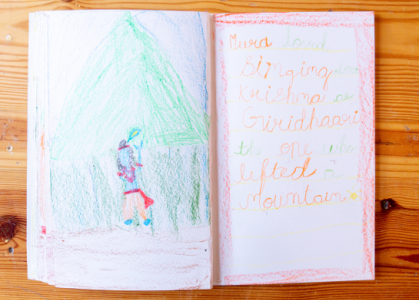 Mira loved
Singing
Krishna as
Giridhaari
the one who
lifted a
mountain